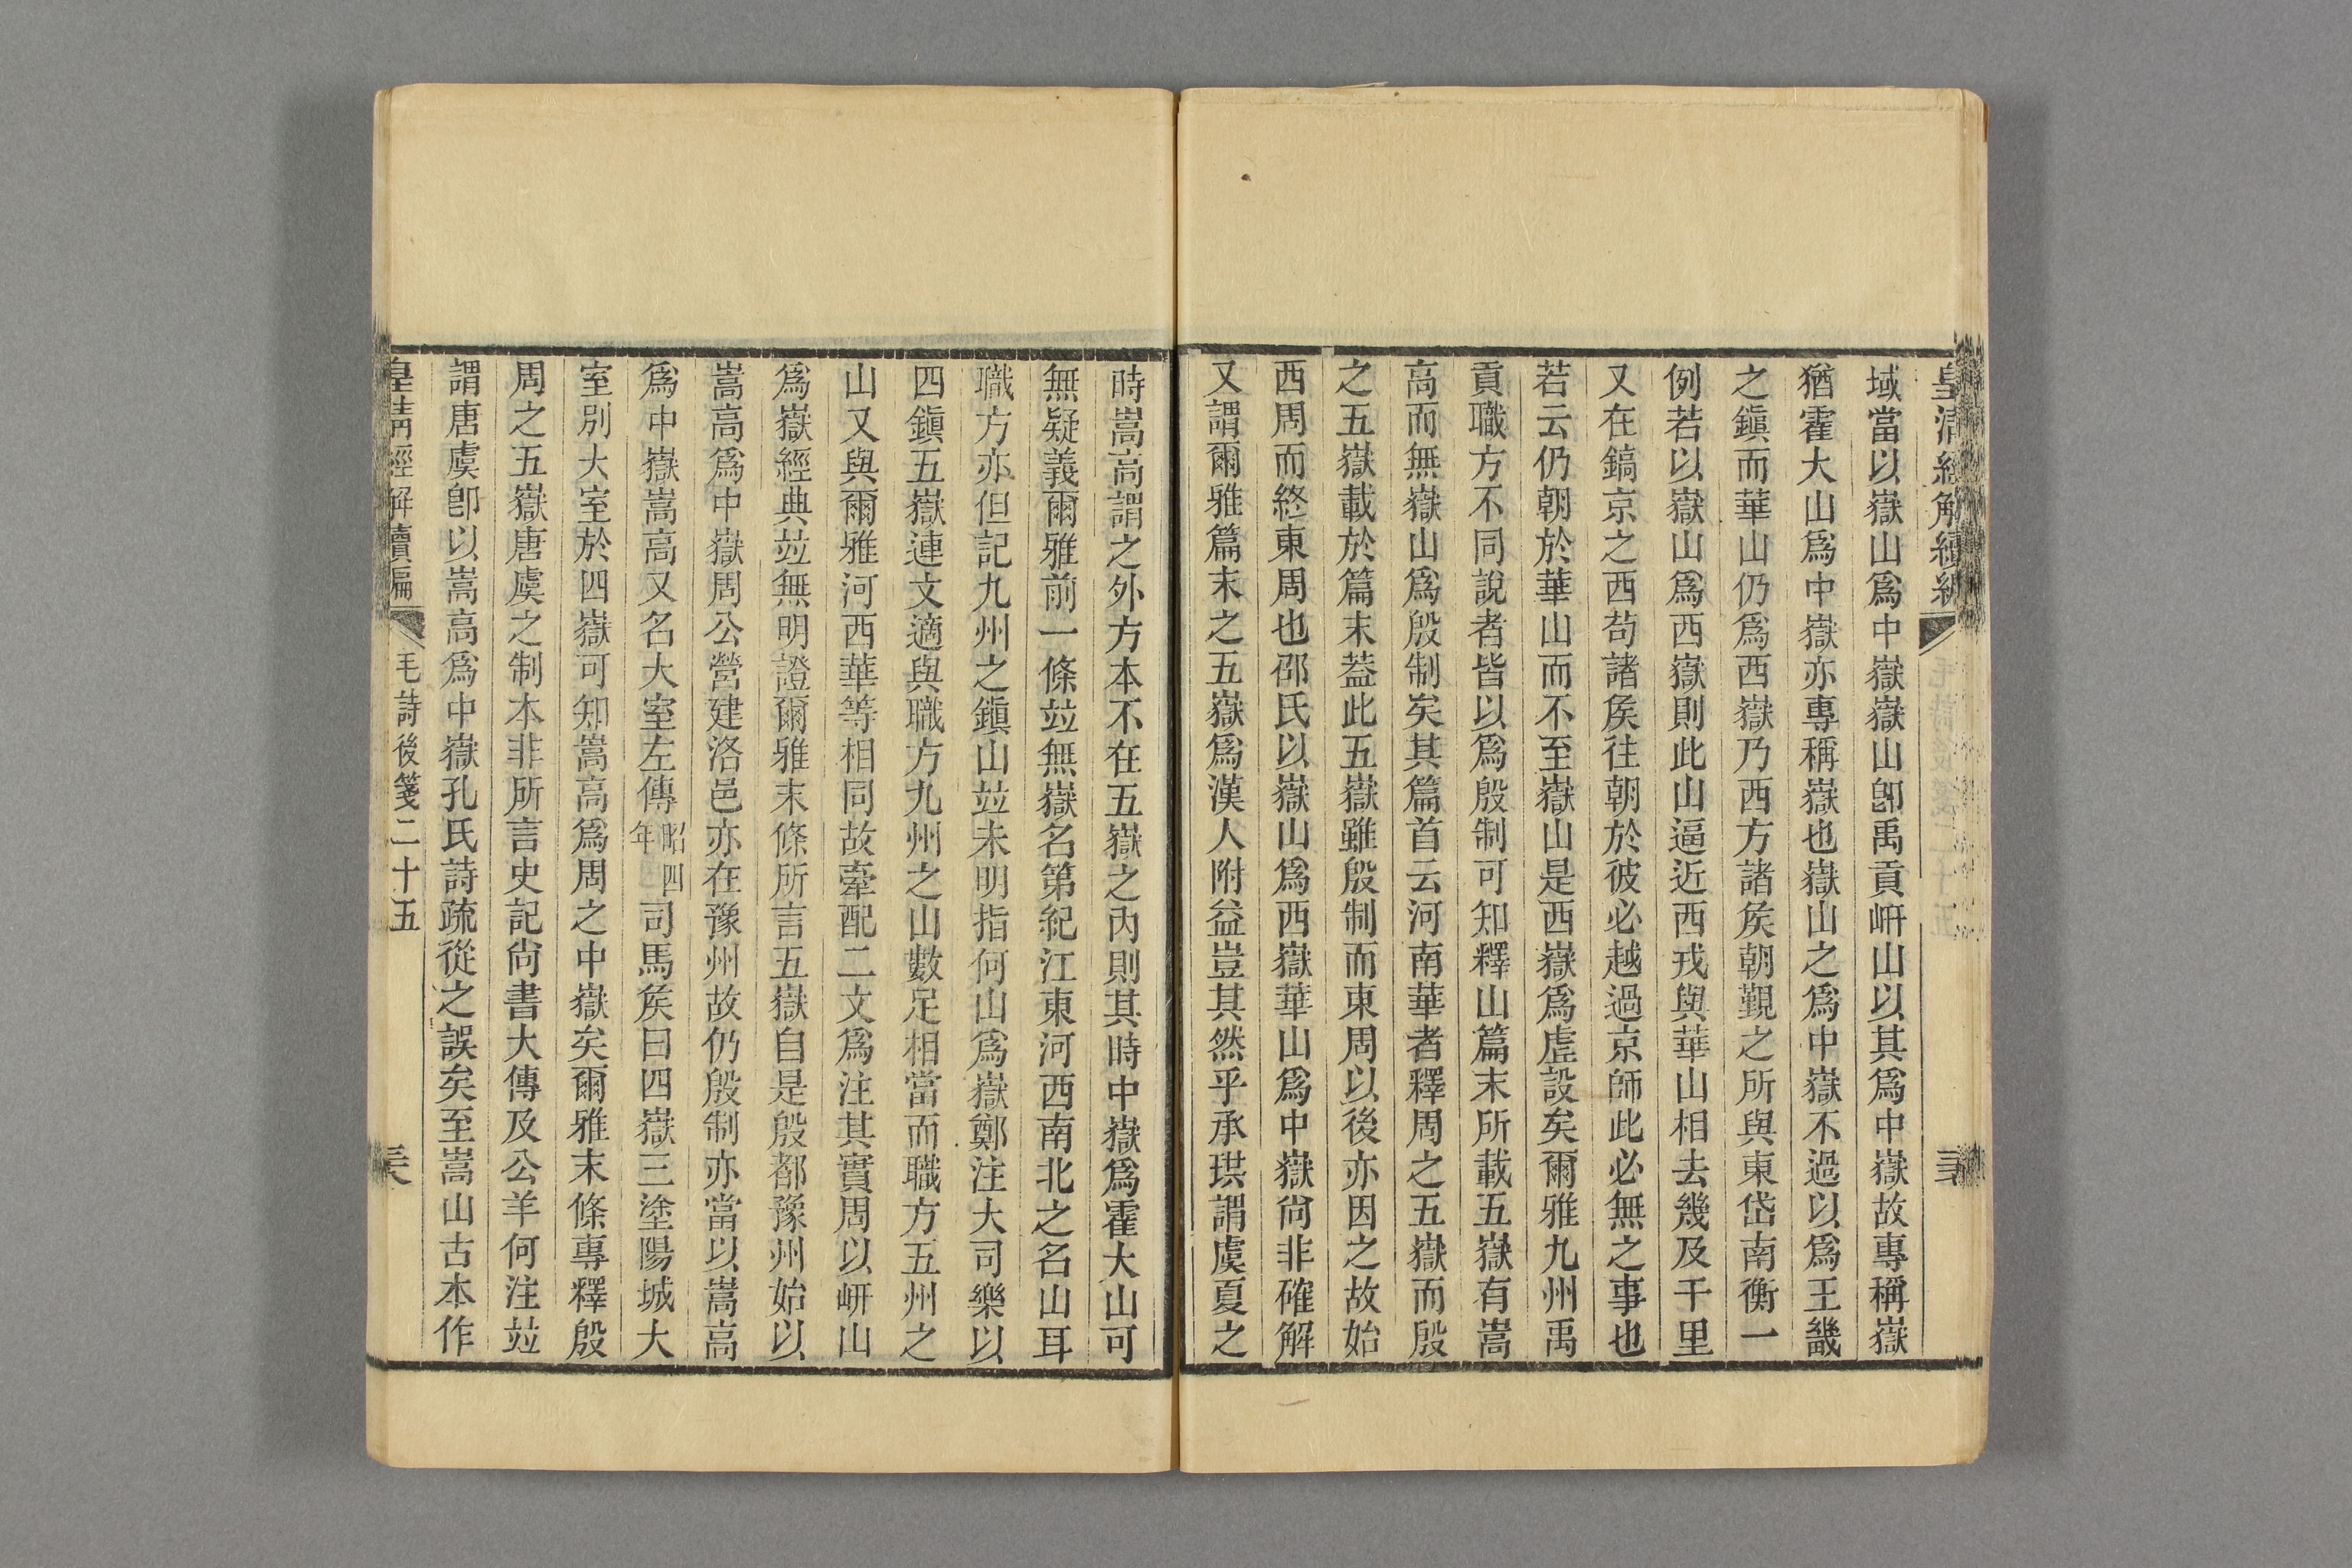 皇清經解續編
域當以嶽山爲中嶽嶽山卽禹貢岍山以其爲中嶽故專稱嶽
猶霍大山爲中嶽亦專稱嶽也嶽山之爲中嶽不過以爲王畿
之鎭而華山仍爲西嶽乃西方諸矦朝覲之所與東岱南衡一
例若以嶽山爲西嶽則此山逼近西戎與華山相去幾及千里
又在鎬京之西苟諸矦往朝於彼必越過京師此必無之事也
若云仍朝於華山而不至嶽山是西嶽爲虛設矣爾雅九州禹
貢職方不同說者皆以爲殷制可知釋山篇末所載五嶽有嵩
高而無嶽山爲殷制矣其篇首云河南華者釋周之五嶽而殷
之五嶽載於篇末葢此五嶽雖殷制而東周以後亦因之故始
西周而終東周也邵氏以嶽山爲西嶽華山爲中嶽尙非確解
又謂爾雅篇末之五嶽爲漢人附益豈其然乎承珙謂虞夏之
時嵩高謂之外方本不在五嶽之內則其時中嶽爲霍大山可
無疑義爾雅前一條竝無嶽名第紀江東河西南北之名山耳
職方亦但記九州之鎭山竝未明指何山爲嶽鄭注大司樂以
四鎭五嶽連文適與職方九州之山數足相當而職方五州之
山又與爾雅河西華等相同故牽配二文爲注其實周以岍山
爲嶽經典竝無明證爾雅末條所言五嶽自是殷都豫州始以
嵩高爲中嶽周公營建洛邑亦在豫州故仍殷制亦當以嵩高
爲中嶽嵩高又名大室左傳昭四年司馬矦曰四嶽三塗陽城大
室別大室於四嶽可知嵩高爲周之中嶽矣爾雅末條專釋殷
周之五嶽唐虞之制本非所言史記尙書大傳及公羊何注竝
謂唐虞卽以嵩高爲中嶽孔氏詩疏從之誤矣至嵩山古本作
皇清經解續編 毛詩後箋二十五